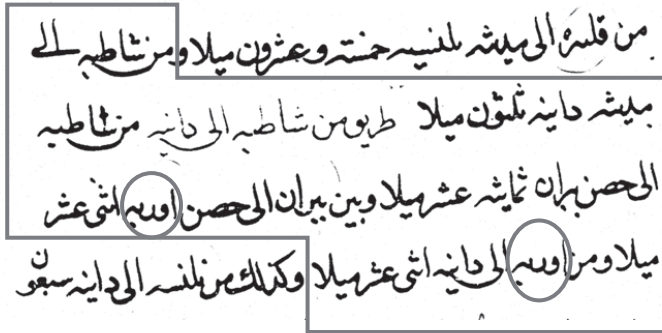 من قليره الى مدينه بلنسيه خمسة وعشرون ميلا ومن شاطبه الى
مدينه دانيه ثلثون ميلا طريق من شاطبه الى دانيه من شاطبه
الى حصن بيران ثمانيه عشر ميلا وبين بيران الى حصن اوربه اثنى عشر
ميلا ومن اوربه الى دانيه اثنى عشر ميلا وكذلك من بلنسه الى دانيه سبعون